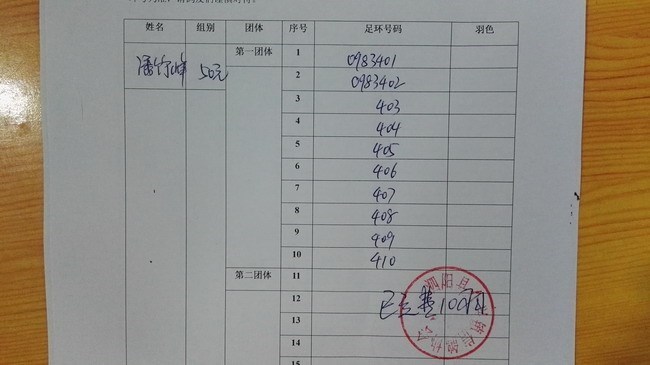 姓名 组别 团体 序号 足环号码 羽色
潘 50元 第一团体 1 0983401
2 0983402
3 403
4 404
5 405
6 406
7 407
8 408
9 409
10 410
第二团体 11
12
13
14
15
泗阳县